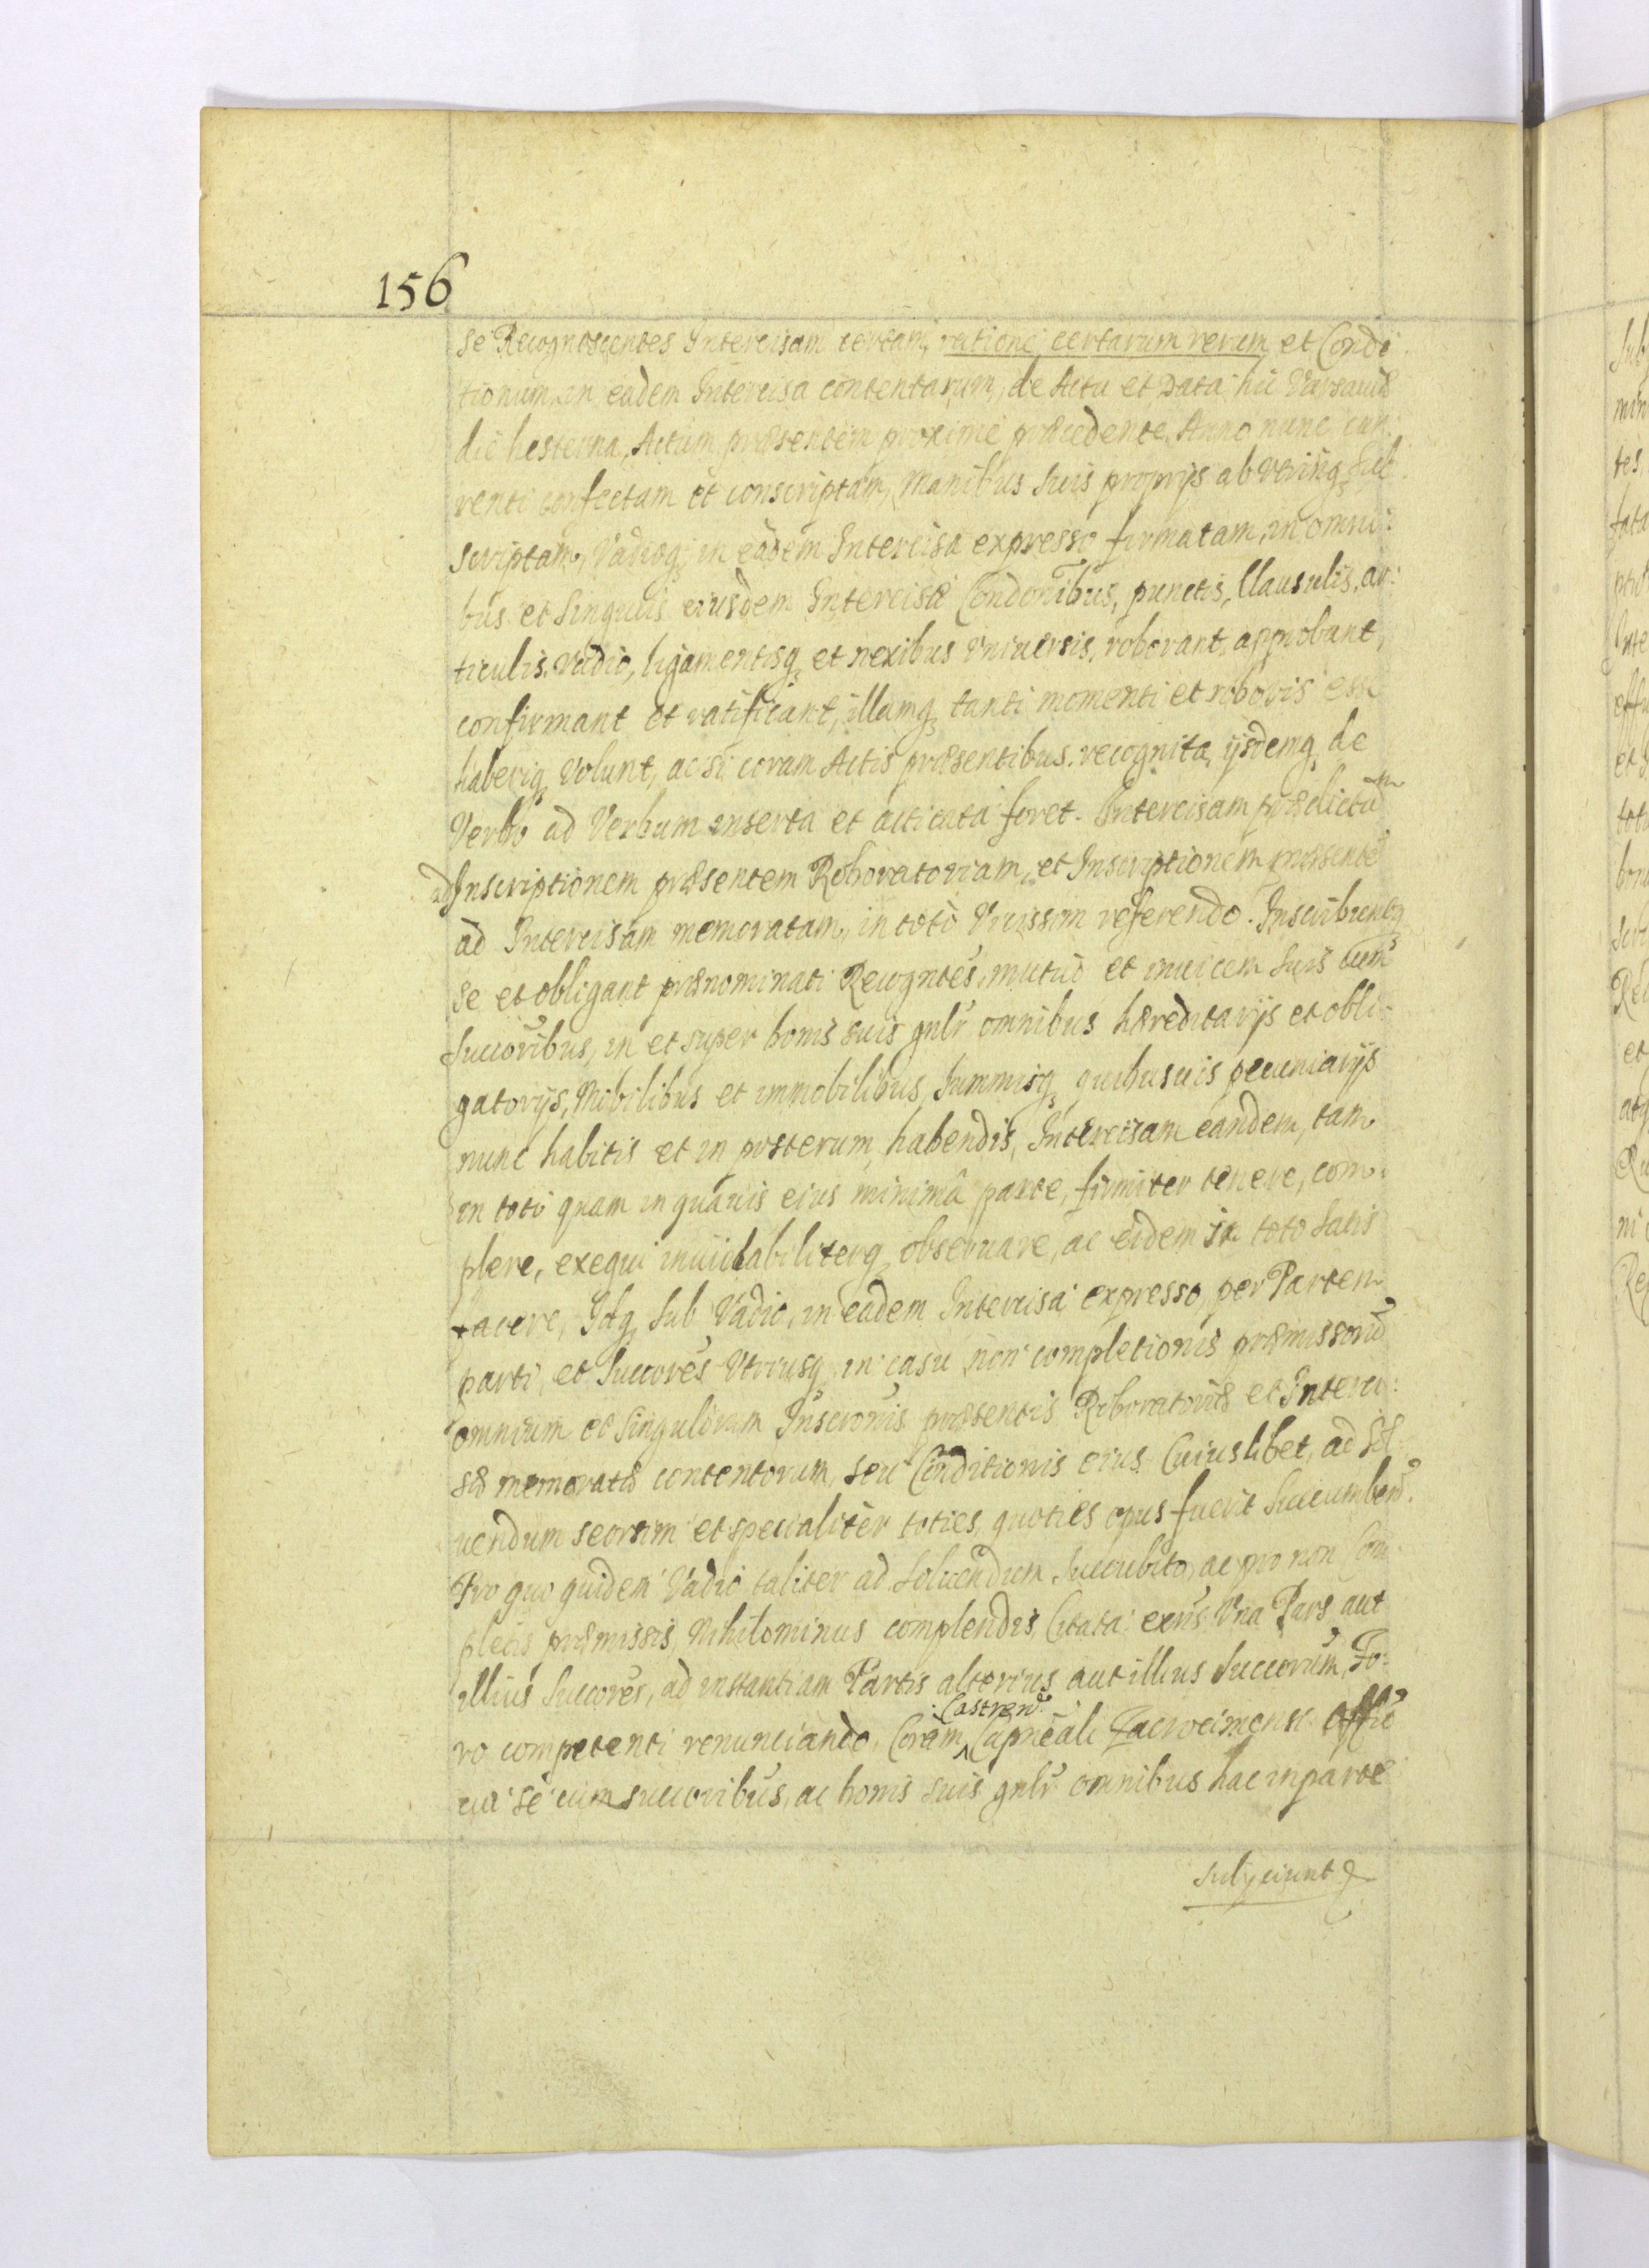 156
se Recognoscentes Intercisam certam, ratione certarum rerum et Condi
tionum, in eadem Intercisa contentarum, de Actu et Data hic Varsaviæ
die hesterna, Actum præsentem proximè præcedente, Anno nunc cur:
renti confectam et conscriptam, Manibus suis proprijs ab utrinq; sub
scriptam, Vadioq; in eadem Intercisa expresso firmatam, in omni:
bus et singulis eiusdem Intercisæ Condõnibus, punctis, Clausulis, ar:
ticulis, Vadio, ligamentisq; et nexibus Vniuersis, roborant, approbant,
confirmant et ratificant, illamq; tanti momenti et roboris esse
haberiq; Volunt, ac si coram Actis præsentibus recognita, ijsdemq; de
Verbo ad Verbum inserta et acticata foret. Intercisam prædictam
ad Inscriptionem præsentem Roboratoriam, et Inscriptionem præsentẽ
ad Intercisam memoratam, in toto Vicissim referendo. Inscribuntq;
se et obligant prænominati Recogntes, mutuò et inuicem suis cum
Succoribus, in et super bonis suis gnlr omnibus hæreditarijs et obli-
gatorijs, Mobilibus et immobilibus, Summisq; quibusuis pecuniarijs
nunc habitis et in posterum habendis, Intercisam eandem, tam
in toto quam in quauis eius minimâ parte, firmiter tenere, com:
plere, exequi inuiolabiliterq; obseruare, ac eidem in toto satis
facere, Idq; sub Vadio, in eadem Intercisa expresso, per Partem
parti, et Succores Vtriusq; in casu non completionis præmissorũ
omnium et singulorum Inscronis præsentis Roboratoriæ et Interci:
sæ memoratæ contentorum, seu Conditionis eius Cuiuslibet, ad sol
uendum seorsim et specialiter toties, quoties opus fuerit succumbend.
Pro quo quidem Vadio taliter ad soluendum succubito, ac pro non Com
pletis præmissis, Nihilominus complendis, Citata exñs Vna Pars aut
illius Succores, ad instantiam Partis alterius aut illius Succorum, Fo:
ro competenti renunciando, Coram Capneali Zacrocimensi Offic
:Castren
cui se cum succoribus, ac bonis suis gnlr omnibus hac in parte
subijciunt